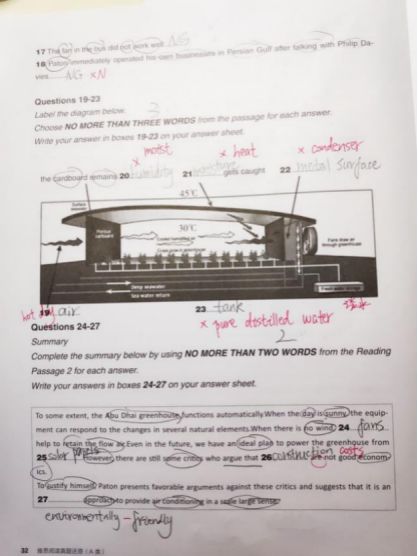 17 The fan in the bus did not work well. NG
18 Paton immediately operated his own businesses in Persian Gulf after talking with Philip Da-
vies. NG ×N
Questions 19-23
Label the diagram below.
Choose NO MORE THAN THREE WORDS from the passage for each answer.
Write your answer in boxes 19-23 on your answer sheet.
moist × heat × condenser
the cardboard remains 20 humidity 21 moisture gets caught 22 metal surface
45℃
Surface
Porous
cardboard
30℃
Fans draw air
through greenhouse
Deep seawater
Sea water return
Fresh water storage
hot dry 19 air 23 tank
× pure distilled water
Questions 24-27
Summary
2
Complete the summary below by using NO MORE THAN TWO WORDS from the Reading
Passage 2 for each answer.
Write your answers in boxes 24-27 on your answer sheet.
To some extent, the Abu Dhai greenhouse functions automatically. When the day is sunny, the equip-
ment can respond to the changes in several natural elements. When there is no wind, 24 fans
help to retain the flow air. Even in the future, we have an ideal plan to power the greenhouse from
25 solar panels However, there are still some critics who argue that 26 construction costs are not good econom-
ics.
To justify himself, Paton presents favorable arguments against these critics and suggests that it is an
27 approach to provide air conditioning in a scale large sense.
environmentally-friendly
32 雅思阅读真题还原（A类）